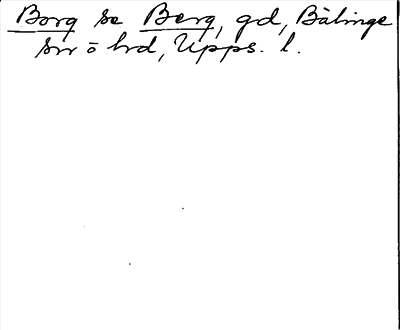 Borg se Berg, gd, Bälinge
sn o hd, Upps. l.